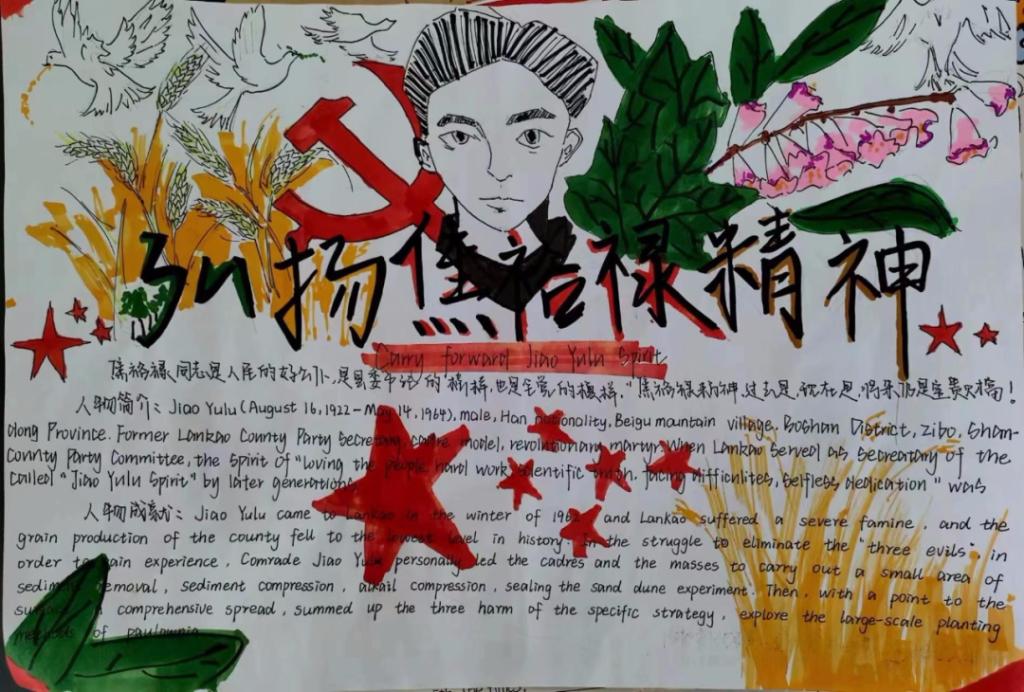 弘扬焦裕禄精神
Carry forward Jiao Yulu Spirit
焦裕禄同志是人民的好公仆,是县委书记的榜样,也是全党的榜样,"焦裕禄精神,过去是,现在是,将来仍是宝贵财富!
人物简介: Jiao Yulu (August 16, 1922 - May 14, 1964), male, Han nationality, Beigu mountain village, Boshan District, Zibo, Shan-
dong Province. Former Lankao County Party Secretary, cadre model, revolutionary martyr. When Lankao served as Secreatary of the
County Party Committee, the spirit of "loving the people, hard work, scientific truth, facing difficulites, selfless dedication" was
Called "Jiao Yulu Spirit" by later generations
人物成就: Jiao Yulu came to Lankao in the winter of 1962 and Lankao suffered a severe famine, and the
grain production of the county fell to the lowest level in history. In the struggle to eliminate the "three evils" in
order to gain experience, Comrade Jiao Yulu personally led the cadres and the masses to carry out a small area of
sediment removal, sediment compression, alkail compression, sealing the sand dune experiment. Then, with a point to the
comprehensive spread, summed up the three harm of the specific strategy, explore the large-scale planting
methods of paulownia